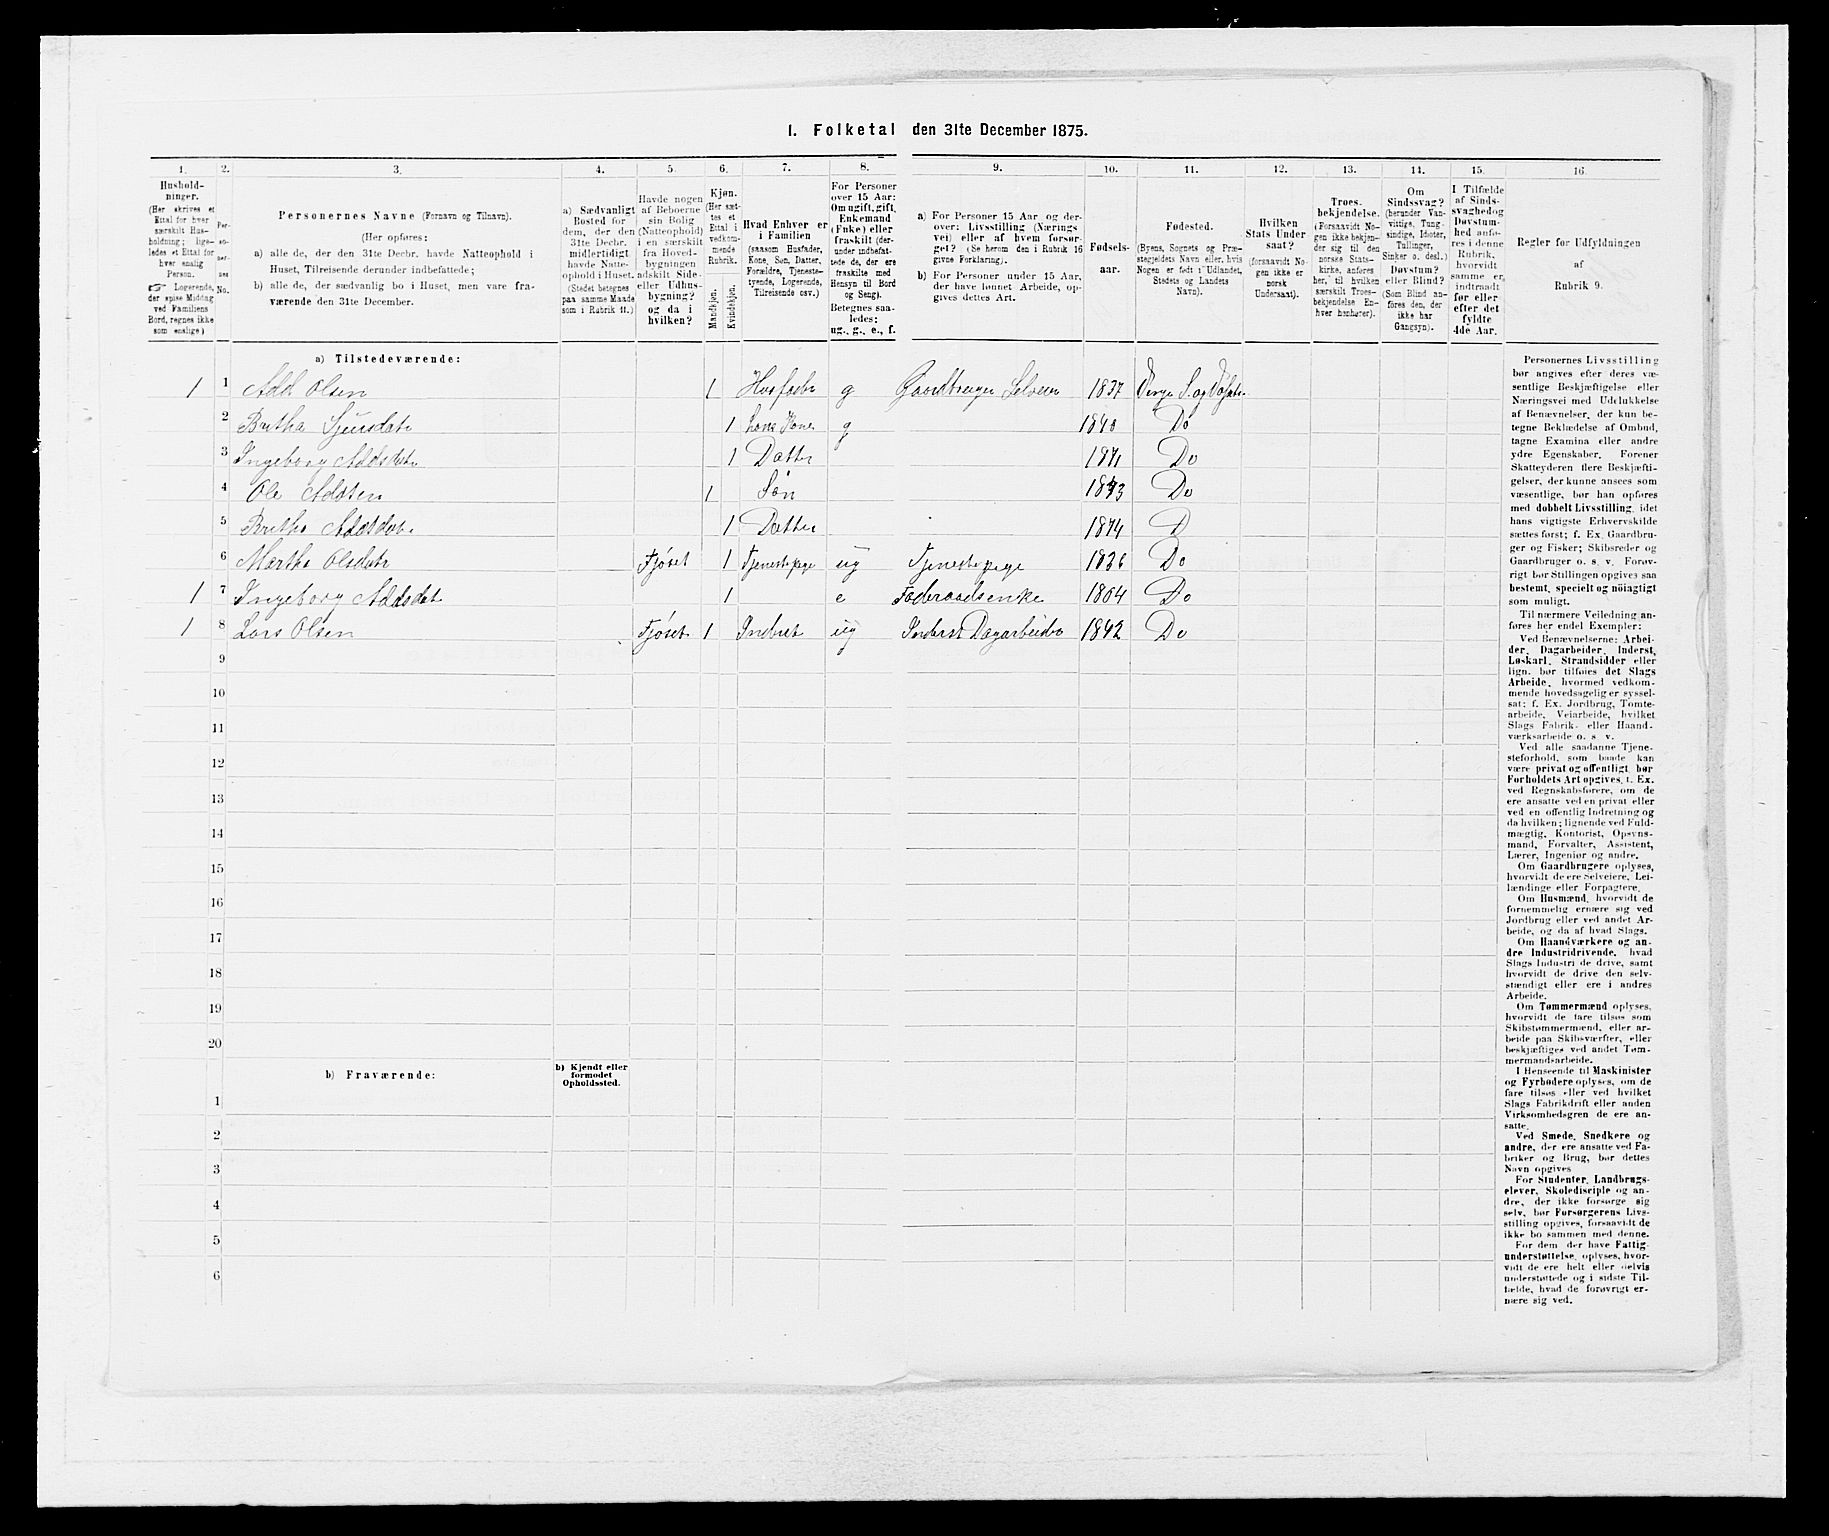 I. Folketal den 31te December 1875.
1. 2. 3. 4. 5. 6. 7. 8. 9. 10. 11. 12. 13. 14. 15. 16.
Hushold-
ninger.
(Her skrives et
Ettal for hver
særskilt Hus-
holdning; lige-
ledes et Ettal for
hver enslig
Person.
☞ Logerende,
der spise Middag
ved Familiens
Bord, regnes ikke
som enslige)
Per-
so-
ner-
nes
No.
Personernes Navne (Fornavn og Tilnavn).
(Her opføres:
a) alle de, der den 31te Decbr. havde Natteophold i
Huset, Tilreisende derunder indbefattede;
b) alle de, der sædvanlig bo i Huset, men vare fra-
værende den 31te December.
a) Sædvanligt
Bosted for
dem, der den
31te Decbr.
midlertidigt
havde Natte-
ophold i Huset.
(Stedet betegnes
paa samme Maade
som i Rubrik 11.)
Havde nogen
af Beboerne
sin Bolig
(Natteophold)
i en særskilt
fra Hoved-
bygningen
adskilt Side-
eller Udhus-
bygning?
og da i
hvilken?
Kjøn.
(Her sæt-
tes et
Ettal i
vedkom-
mende
Rubrik.
Mandkjøn.
Kvindekjøn.
Hvad Enhver er
i Familien
(saasom Husfader,
Kone, Søn, Datter,
Forældre, Tjeneste-
tyende, Logerende,
Tilreisende osv.)
For Personer
over 15 Aar:
Om ugift, gift,
Enkemand
(Enke) eller
fraskilt (der-
under indbefat-
tede de, der ere
fraskilte med
Hensyn til Bord
og Seng).
Betegnes saa-
ledes:
ug., g., e., f.
a) For Personer 15 Aar og der-
over: Livsstilling (Nærings
vei) eller af hvem forsør-
get? (Se herom den i Rubrik 16
givne Forklaring).
b) For Personer under 15 Aar,
der have lønnet Arbeide, op-
gives dettes Art.
Fødsels-
aar.
Fødested.
(Byens, Sognets og Præ-
stegjeldets Navn eller, hvis
Nogen er født i Udlandet,
Stedets og Landets
Navn).
Hvilken
Stats Under
saat?
(forsaavidt No-
gen ikke er
norsk
Undersaat).
Troes-
bekjendelse.
(Forsaavidt No-
gen ikke bekjen-
der sig til den
norske Stats-
kirke, anføres
her, til hvilken
særskilt Troes-
bekjendelse En-
hver henhører).
Om
Sindssvag?
(herunder Van-
vittige, Tung-
sindige, Idioter,
Tullinger,
Sinker o. desl.)
Døvstum?
eller Blind?
(Som Blind an-
føres den, der
ikke har
Gangsyn).
I Tilfælde
af Sinds-
svaghed og
Døvstum-
hed anfø-
res i denne
Rubrik,
hvorvidt
samme er
indtraadt
før eller
efter det
fyldte
4de Aar.
Regler for Udfyldningen
af
Rubrik 9.
a) Tilstedeværende:
1 1 Adds Olsen 1 Husfader g Gaardbruger Selveier 1837
2 Britha Sjursdatr 1 hans Kone g 1840 Do
3 Ingeborg Addsdatr 1 Datter 1871 Do
4 Ole Addsen 1 Søn 1873 Do
5 Britha Addsdatr 1 Datter 1874 D
6 Martha Olsdatr Fjøset 1 Tjenestepige ug Tjenestepige 1836 Do
1 7 Ingeborg Addsdat 1 e Føderaadsenke 1804 Do
1 8 Lars Olsen Fjøset 1 Inderst ug Inderst Dagarbeider 1842 Do
9
10
11
12
13
14
15
16
17
18
19
20
b) Fraværende:
b) Kjendt eller
formodet
Opholdssted.
1
2
3
4
5
6
Personernes Livsstilling
bør angives efter deres væ-
sentlige Beskjæftigelse eller
Næringsvei med Udelukkelse
af Benævnelser, der kun be-
tegne Beklædelse af Ombud,
tagne Examina eller andre
ydre Egenskaber. Forener
Skatteyderen flere Beskjæfti-
gelser, der kunne ansees som
væsentlige, bør han opføres
med dobbelt Livsstilling, idet
hans vigtigste Erhvervskilde
sættes først; f. Ex. Gaardbru-
ger og Fisker; Skibsreder og
Gaardbruger o. s. v. Forøv-
rigt bør Stillingen opgives saa
bestemt, specielt og nöiagtigt
som muligt.
Til nærmere Veiledning an-
føres her endel Exempler:
Ved Benævnelserne: Arbei-
der, Dagarbeider, Inderst,
Løskarl, Strandsidder eller
lign. bør tilføies det Slags
Arbeide, hvormed vedkom-
mende hovedsagelig er syssel-
sat; f. Ex. Jordbrug, Tomte-
arbeide, Veiarbeide, hvilket
Slags Fabrik- eller Haand-
værksarbeide o. s. v.
Ved alle saadanne Tjene-
steforhold, som baade kan
være privat og offentligt, bør
Forholdets Art opgives, t. Ex.
ved Regnskabsførere, om de
ere ansatte ved en privat eller
ved en offentlig Indretning og
da hvilken; lignende ved Fuld-
mægtig, Kontorist, Opsyns-
mand, Forvalter, Assistent,
Lærer, Ingeniør og andre.
Om Gaardbrugere oplyses,
hvorvidt de ere Selveiere, Lei-
lændinge eller Forpagtere.
Om Husmænd, hvorvidt de
fornemmelig ernære sig ved
Jordbrug eller ved andet Ar-
beide, og da af hvad Slags.
Om Haandværkere og an-
dre Industridrivende, hvad
Slags Industri de drive, samt
hvorvidt de drive den selv-
stændigt eller ere i andres
Arbeide.
Om Tømmermænd oplyses,
hvorvidt de fare tilsøs som
Skibstømmermænd, eller ar-
beide paa Skibsværfter, eller
beskjæftiges ved andet Tøm-
mermandsarbeide.
I Henseende til Maskinister
og Fyrbødere oplyses, om de
fare tilsøs eller ved hvilket
Slags Fabrikdrift eller anden
Virksomhedsgren de ere an-
satte.
Ved Smede, Snedkere og
andre, der ere ansatte ved Fa-
briker og Brug, bør dettes
Navn opgives
For Studenter, Landbrugs-
elever, Skoledisciple og an-
dre, der ikke forsørge sig
selv, bør Forsørgerens Livs-
stilling opgives, forsaavidt de
ikke bo sammen med denne.
For dem der have Fattig-
understøttelse, oplyses, hvor-
vidt de ere helt eller delvis
understøttede og i sidste Til-
fælde, hvad de forøvrigt er-
nære sig ved.